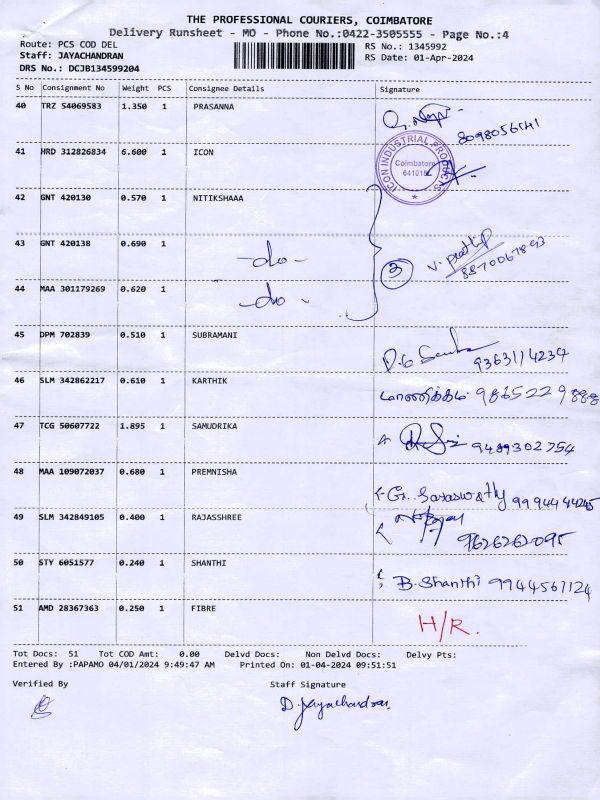 THE PROFESSIONAL COURIERS, COIMBATORE
Delivery Runsheet - MO - Phone No.:0422-3505555 - Page No.:4
Route: PCS COD DEL
Staff: JAYACHANDRAN
DRS No.: DCJB134599204
RS No.: 1345992
RS Date: 01-Apr-2024
S No Consignment No Weight PCS Consignee Details Signature
40 TRZ 54069583 1.350 1 PRASANNA
8098056541
41 HRD 312826834 6.600 1 ICON
ICON INDUSTRIAL PRODUCTS
Coimbatore
42 GNT 420130 0.570 1 NITIKSHAAA
43 GNT 420138 0.690 1 -do-
3 V. Prathip
8870067893
44 MAA 301179269 0.620 1 -do-
45 DPM 702839 0.510 1 SUBRAMANI
9363114234
46 SLM 342862217 0.610 1 KARTHIK மாணிக்கம் 9865229888
47 TCG 50607722 1.895 1 SAMUDRIKA 9489302754
48 MAA 109072037 0.680 1 PREMNISHA
G. Saraswathy 9994444245
49 SLM 342849105 0.400 1 RAJASSHREE
9626262095
50 STY 6051577 0.240 1 SHANTHI
B. Shanthi 9944567124
51 AMD 28367363 0.250 1 FIBRE
H/R.
Tot Docs: 51 Tot COD Amt: 0.00 Delvd Docs: Non Delvd Docs: Delvy Pts:
Entered By :PAPAMO 04/01/2024 9:49:47 AM Printed On: 01-04-2024 09:51:51
Verified By Staff Signature
D. Jayachandran